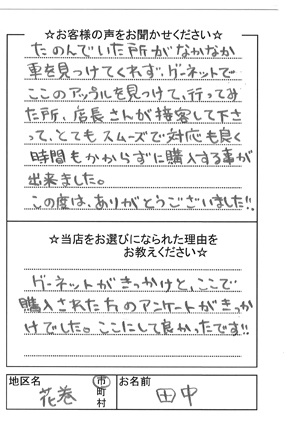 ☆お客様の声をお聞かせください☆
たのんでいた所がなかなか
車を見つけてくれず、グーネットで
ここのアップルを見つけて、行ってみ
た所、店長さんが接客して下さ
って、とてもスムーズで対応も良く
時間もかからずに購入する事が
出来ました。
この度は、ありがとうございました!!
☆当店をお選びになられた理由を
お教えください☆
グーネットがきっかけと、ここで
購入された方のアンケートがきっか
けでした。ここにして良かったです!!
地区名 花巻 市町村 お名前 田中